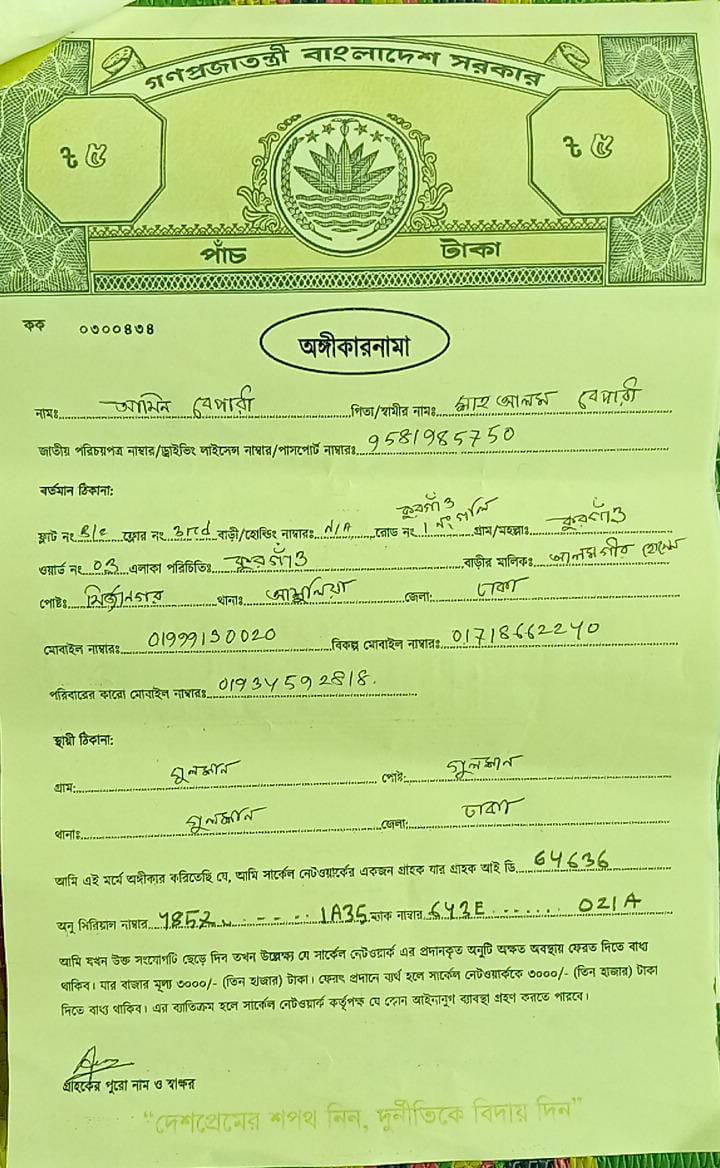 গণপ্রজাতন্ত্রী বাংলাদেশ সরকার
৳ ৫ ৳ ৫
পাঁচ টাকা
কক ০৩০০৪৩৪
অঙ্গীকারনামা
নামঃ আমিন বেপারী পিতা/স্বামীর নামঃ শাহ আলম বেপারী
জাতীয় পরিচয়পত্র নাম্বার/ড্রাইভিং লাইসেন্স নাম্বার/পাসপোর্ট নাম্বারঃ 9581985750
বর্তমান ঠিকানা:
ফ্লাট নং B/e ফ্লোর নং 3rd বাড়ী/হোল্ডিং নাম্বারঃ N/A রোড নং কুরগাঁও 1 নং গলি গ্রাম/মহল্লাঃ কুরগাঁও
ওয়ার্ড নং 03 এলাকা পরিচিতিঃ কুরগাঁও বাড়ীর মালিকঃ আলমগীর হোসেন
পোষ্টঃ মির্জানগর থানাঃ আশুলিয়া জেলা: ঢাকা
মোবাইল নাম্বারঃ 01999130020 বিকল্প মোবাইল নাম্বারঃ 01718662240
পরিবারের কারো মোবাইল নাম্বারঃ 01934592818.
স্থায়ী ঠিকানা:
গ্রাম: গুলশান পোষ্ট: গুলশান
থানাঃ গুলশান জেলা: ঢাকা
আমি এই মর্মে অঙ্গীকার করিতেছি যে, আমি সার্কেল নেটওয়ার্কের একজন গ্রাহক যার গ্রাহক আই ডি 64636
অনু সিরিয়াল নাম্বার 4852 ...... 1A35 ম্যাক নাম্বার 643E ...... 021A
আমি যখন উক্ত সংযোগটি ছেড়ে দিব তখন উল্লেক্ষ্য যে সার্কেল নেটওয়ার্ক এর প্রদানকৃত অনুটি অক্ষত অবস্থায় ফেরত দিতে বাধ্য
থাকিব। যার বাজার মূল্য ৩০০০/- (তিন হাজার) টাকা। ফেরৎ প্রদানে ব্যর্থ হলে সার্কেল নেটওয়ার্ককে ৩০০০/- (তিন হাজার) টাকা
দিতে বাধ্য থাকিব। এর ব্যতিক্রম হলে সার্কেল নেটওয়ার্ক কর্তৃপক্ষ যে কোন আইনানুগ ব্যবস্থা গ্রহণ করতে পারবে।
গ্রাহকের পুরো নাম ও স্বাক্ষর
"দেশপ্রেমের শপথ নিন, দুর্নীতিকে বিদায় দিন"